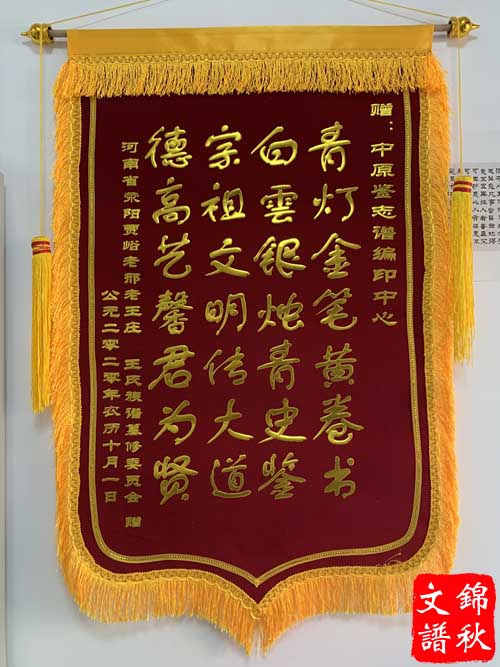 赠：中原鉴志谱编印中心
青灯金笔黄卷书
白雲银烛青史鉴
宗祖文明传大道
德高艺馨君为贤
河南省荥阳贾峪老邢老王庄 王氏族谱纂修委员会 赠
公元二零二零年农历十月一日
錦秋
文譜